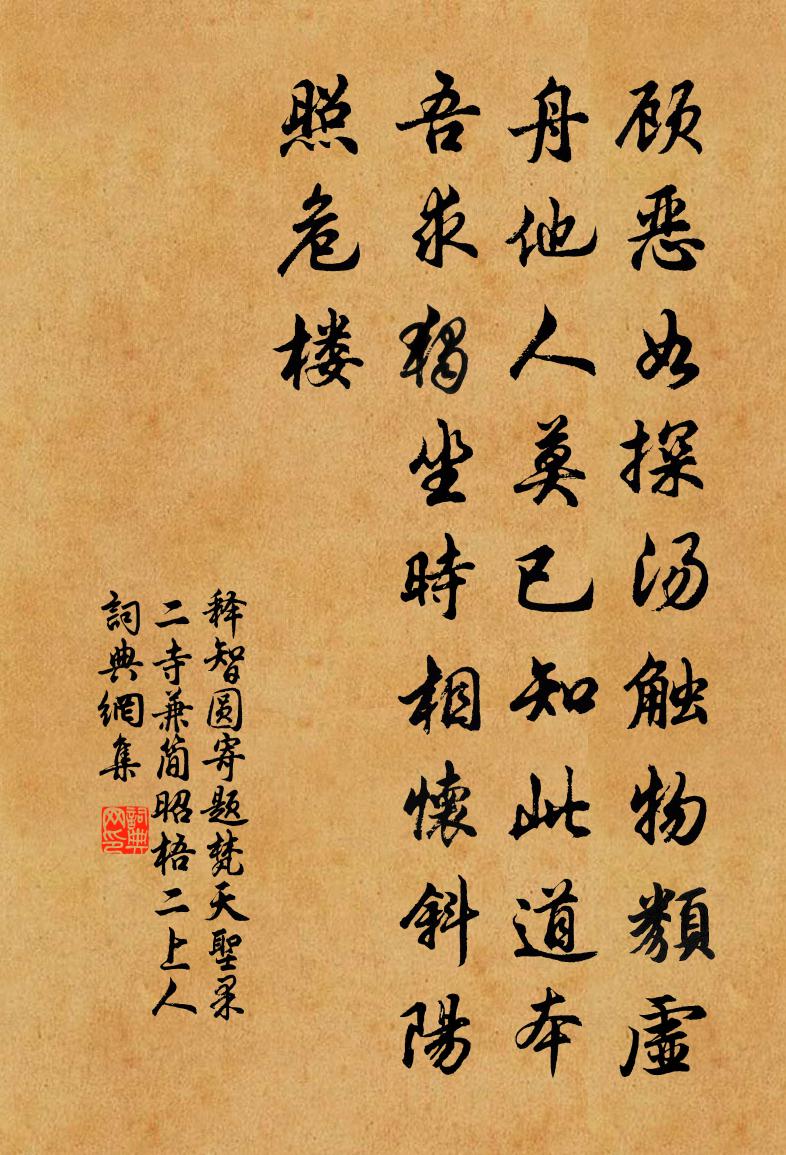 顾恶如探汤触物类虚
舟他人莫已知此道本
吾求独坐時相懷斜陽
照危楼
释智圆寄题梵天聖果
二寺兼简昭梧二上人
詞典網集
詞典
网印